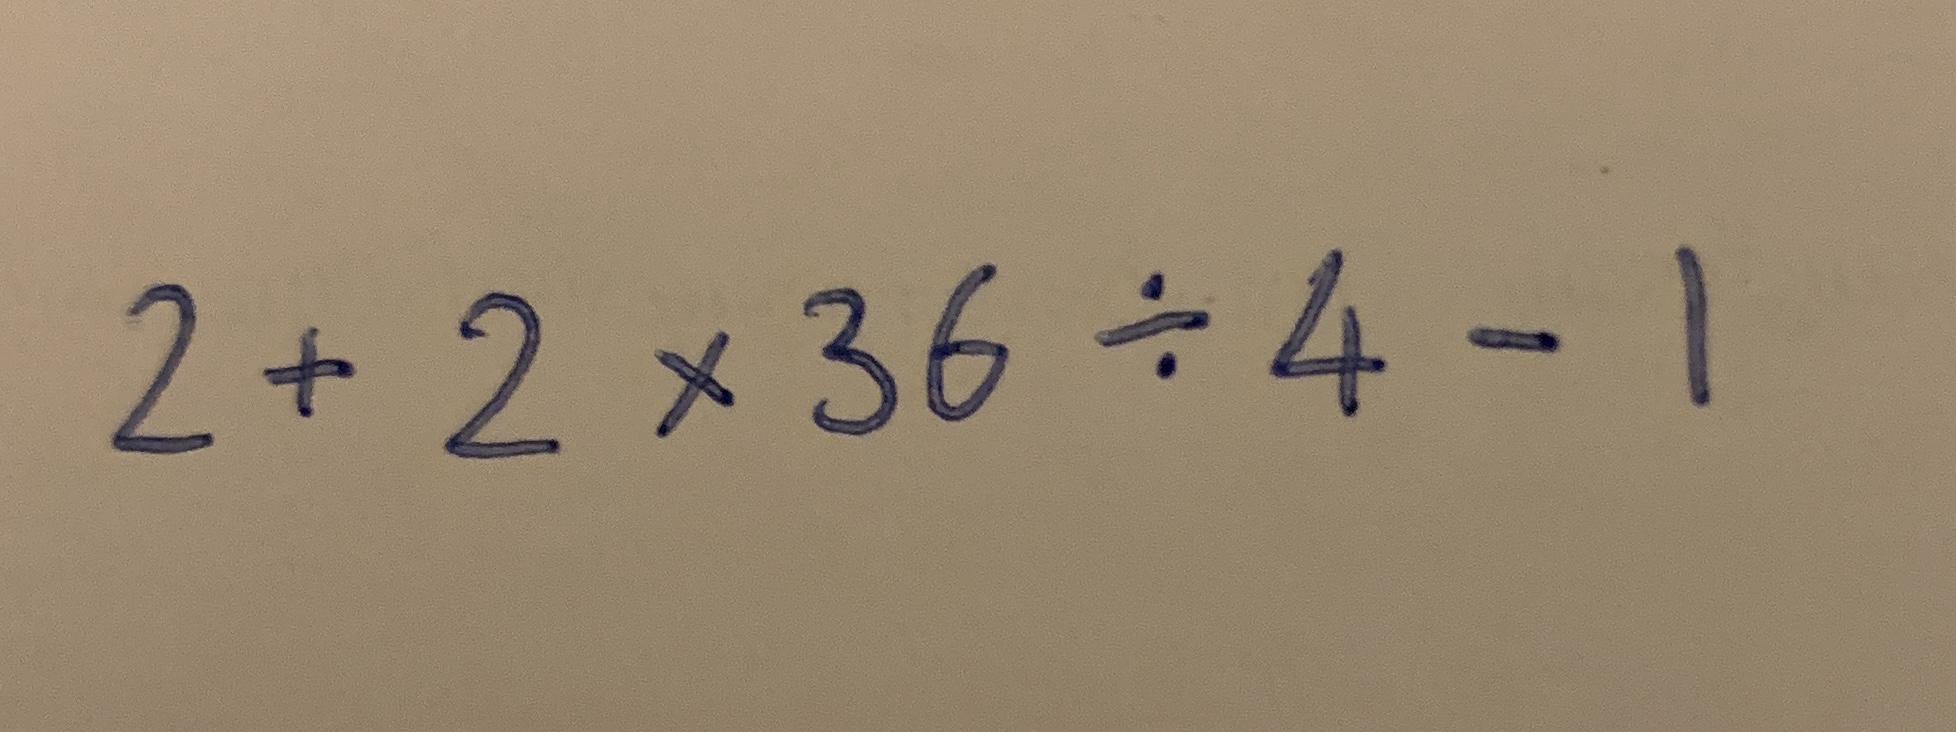 2 + 2 × 36 ÷ 4 - 1